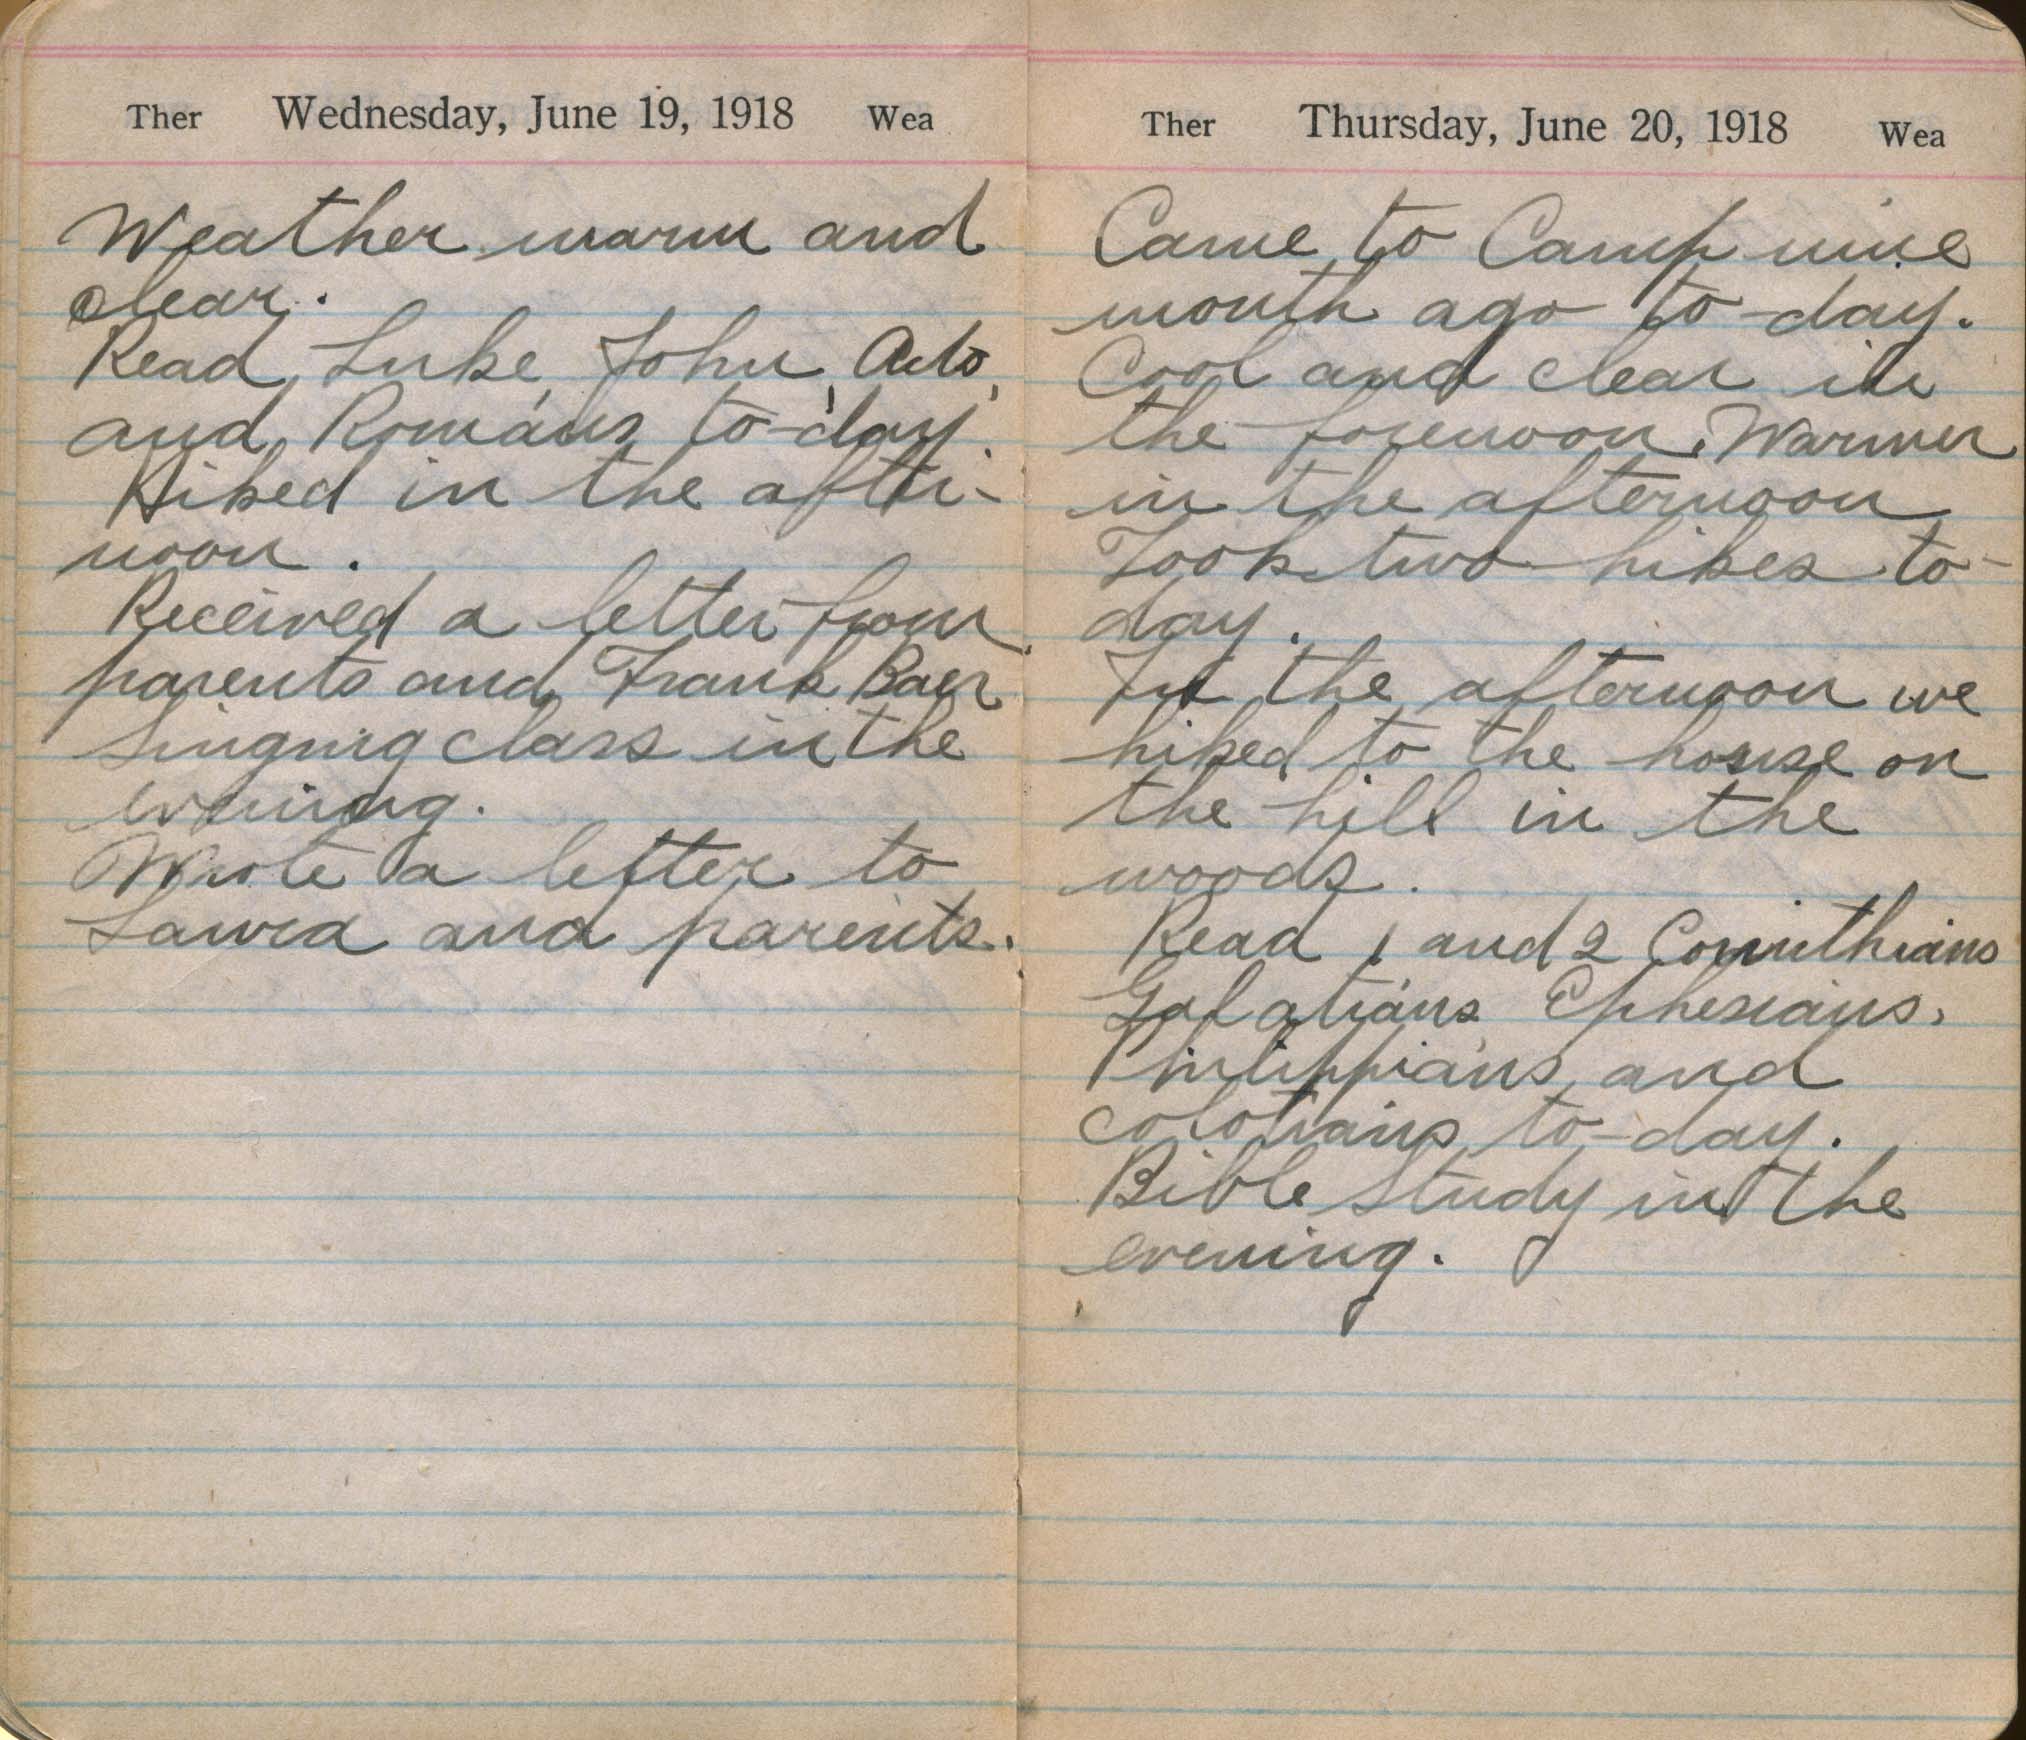 Ther Wednesday, June 19, 1918 Wea
Weather warm and
clear.
Read Luke, John, Acts,
and Romans to-day.
Hiked in the after-
noon.
Received a letter from
parents and Frank Baer
Singing class in the
evening.
Wrote a letter to
Laura and parents.
Ther Thursday, June 20, 1918 Wea
Came to Camp nine
month ago to-day.
Cool and clear in
the forenoon. Warmer
in the afternoon
Took two hikes to-
day.
In the afternoon we
hiked to the house on
the hill in the
woods.
Read 1 and 2 Corinthians
Galatians Ephesians,
Philippians and
Colotians to-day.
Bible Study in the
evening.